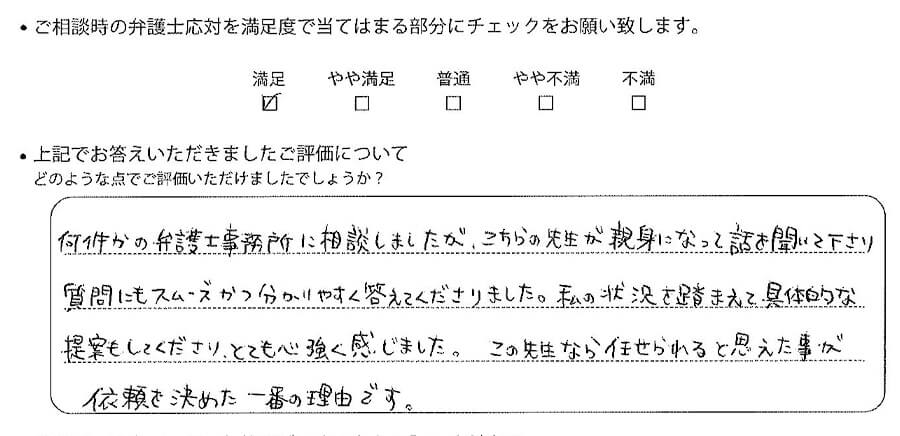 • ご相談時の弁護士応対を満足度で当てはまる部分にチェックをお願い致します。
満足 やや満足 普通 やや不満 不満
☑ □ □ □ □
• 上記でお答えいただきましたご評価について
どのような点でご評価いただけましたでしょうか？
何件かの弁護士事務所に相談しましたが、こちらの先生が親身になって話を聞いて下さり
質問にもスムーズかつ分かりやすく答えてくださりました。私の状況を踏まえて具体的な
提案もしてくださり、とても心強く感じました。 この先生なら任せられると思えた事が
依頼を決めた一番の理由です。